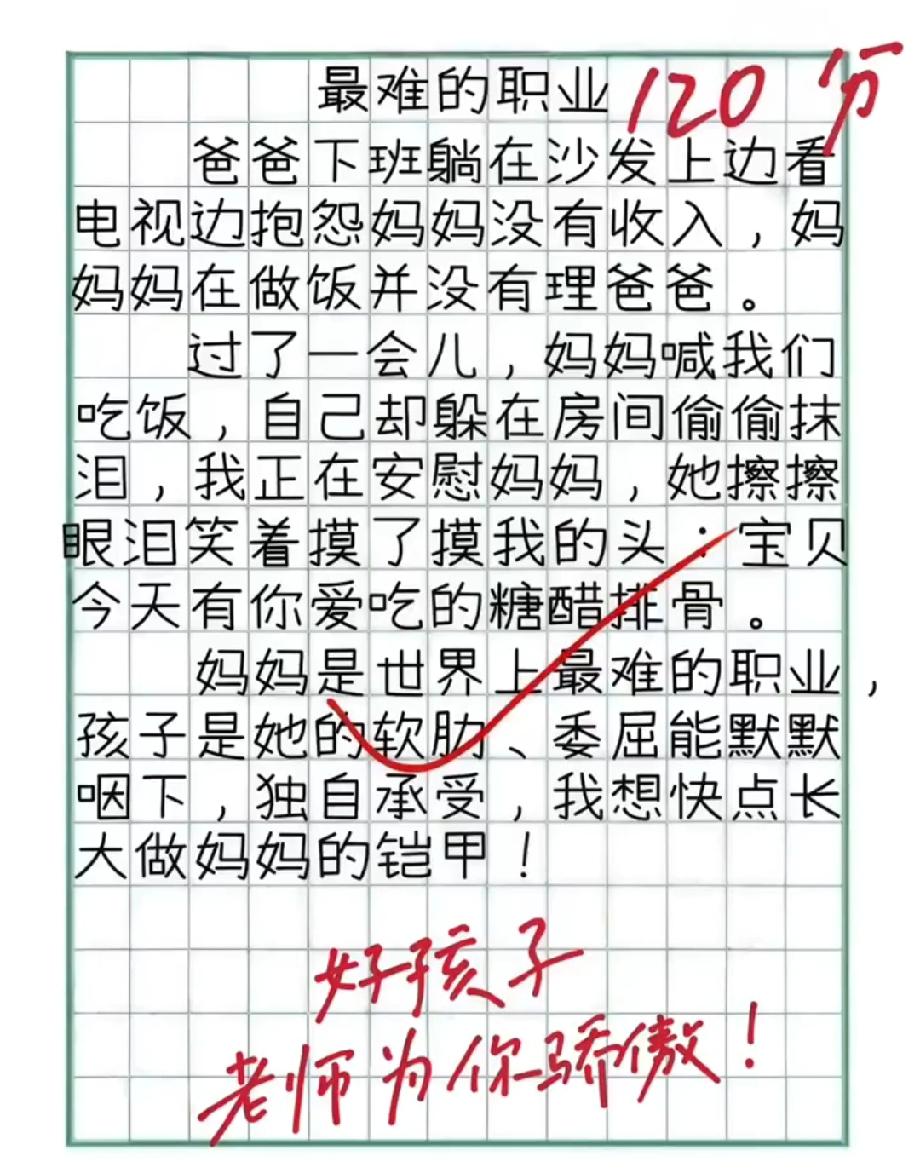 最难的职业 120分
爸爸下班躺在沙发上边看
电视边抱怨妈妈没有收入，妈
妈妈在做饭并没有理爸爸。
过了一会儿，妈妈喊我们
吃饭，自己却躲在房间偷偷抹
泪，我正在安慰妈妈，她擦擦
眼泪笑着摸了摸我的头：宝贝
今天有你爱吃的糖醋排骨。
妈妈是世界上最难的职业，
孩子是她的软肋、委屈能默默
咽下，独自承受，我想快点长
大做妈妈的铠甲！
好孩子
老师为你骄傲！